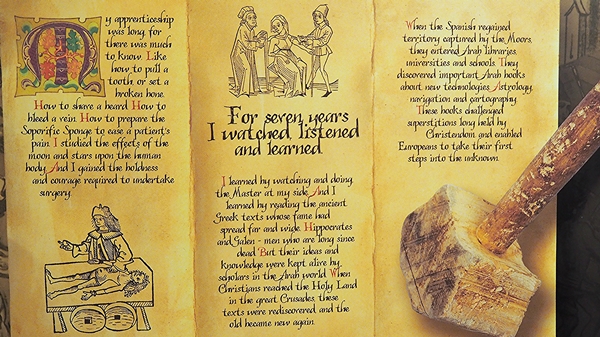 My apprenticeship
was long, for
there was much
to know. Like
how to pull a
tooth or set a
broken bone.
How to shave a beard. How to
bleed a vein. How to prepare the
Soporific Sponge to ease a patient's
pain. I studied the effects of the
moon and stars upon the human
body. And I gained the boldness
and courage required to undertake
surgery.
For seven years
I watched, listened
and learned.
I learned by watching and doing,
the Master at my side. And I
learned by reading the ancient
Greek texts whose fame had
spread far and wide. Hippocrates
and Galen - men who are long since
dead. But their ideas and
knowledge were kept alive by
scholars in the Arab world. When
Christians reached the Holy Land
in the great Crusades, these
texts were rediscovered and the
old became new again.
When the Spanish regained
territory captured by the Moors,
they entered Arab libraries,
universities and schools. They
discovered important Arab books
about new technologies. Astrology,
navigation and cartography.
These books challenged
superstitions long held by
Christendom and enabled
Europeans to take their first
steps into the unknown.